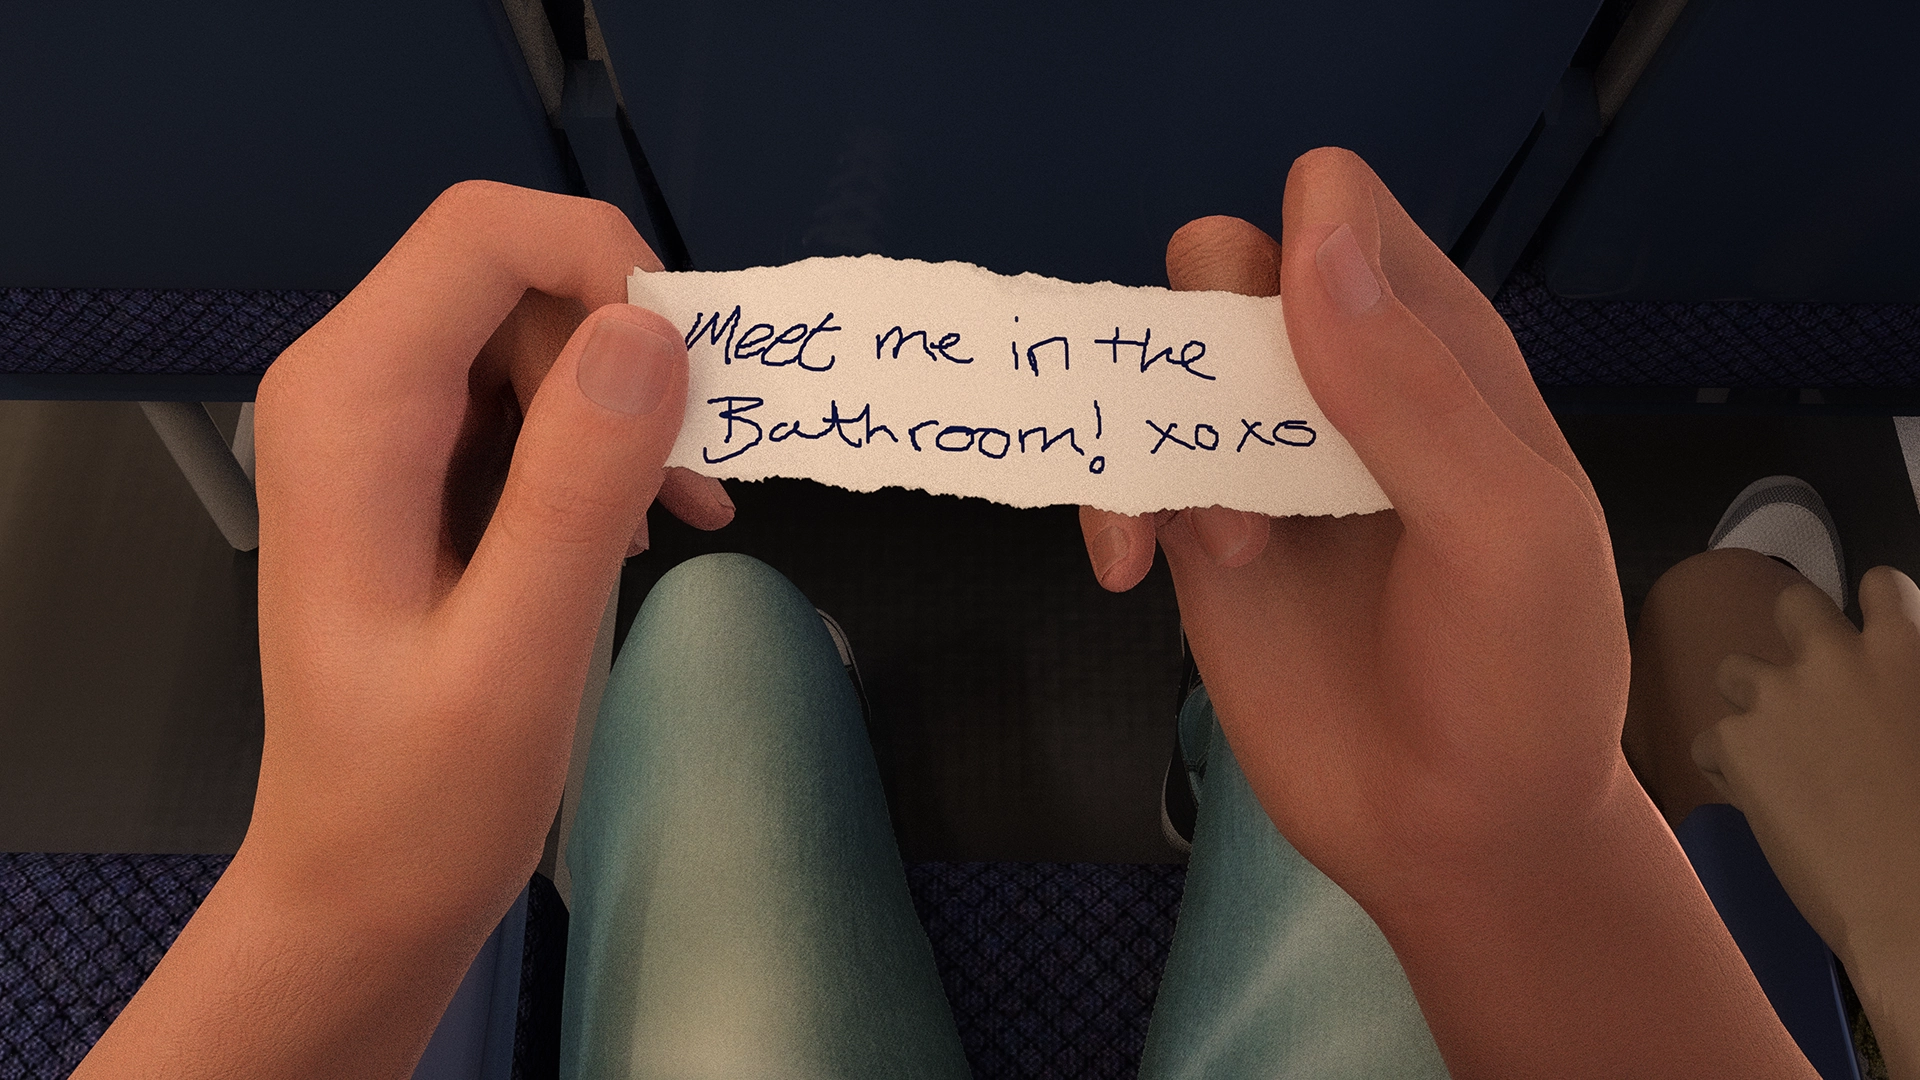 Meet me in the
Bathroom! xoxo